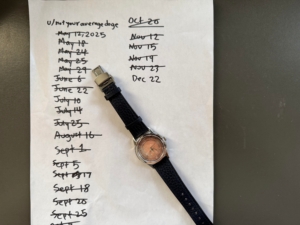 u/nutyouraveragedoge
May 12, 2025
May 18
May 24
May 25
May 29
June 6
June 22
July 10
July 14
July 25
August 16
Sept 1
Sept 5
Sept 17
Sept 18
Sept 20
Sept 25
Oct 20
Nov 12
Nov 15
Nov 19
Nov 23
Dec 22